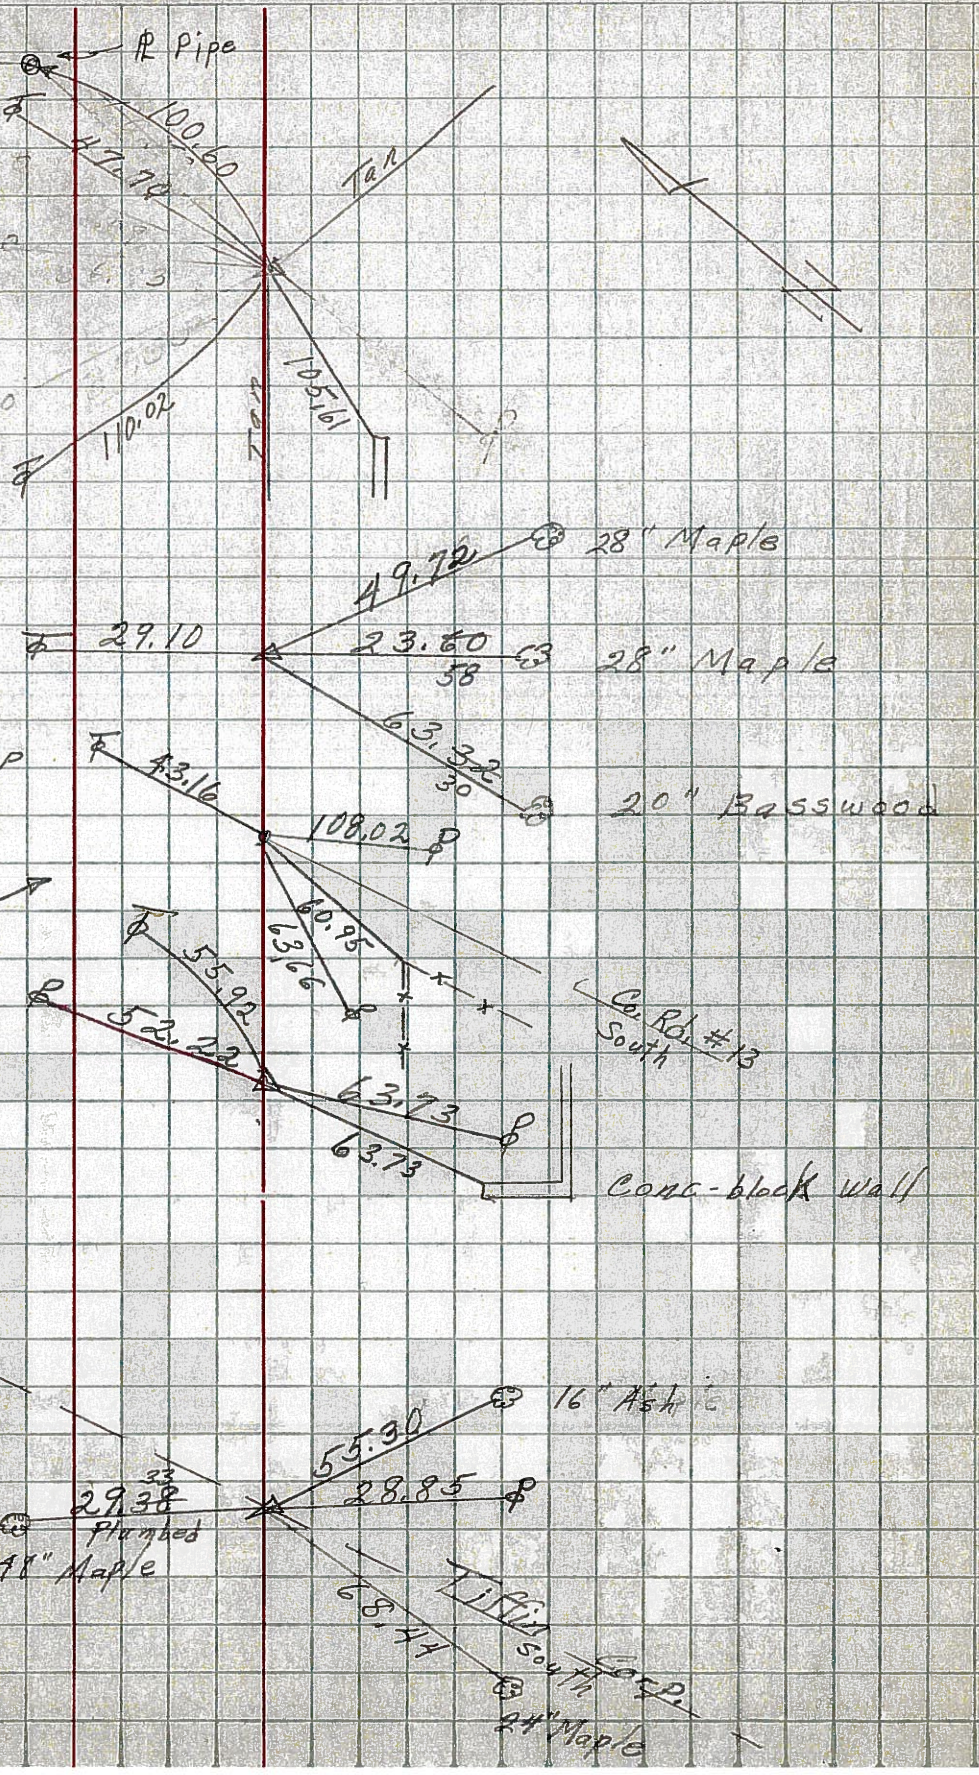 PL Pipe
100.60
47.70
Tan
110.02
Tan
105.61
49.72
28" Maple
29.10
23.60
58
28" Maple
63.32
30
20" Basswood
43.16
108.02
60.95
63.66
55.92
52.22
Co. Rd. #13
South
63.73
63.73
Conc-block Wall
16" Ash
55.30
33
29.38
28.85
Plumbed
48" Maple
68.44
Tiffin
South Corp.
24" Maple